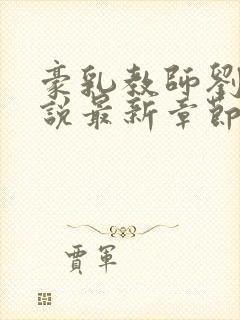 豪乳教師劉
說最新章節
賈軍